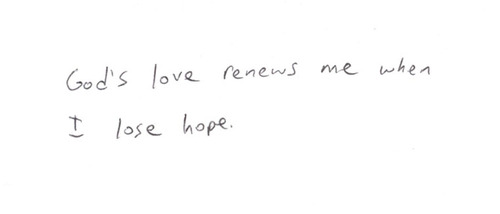 God's love renews me when
I lose hope.